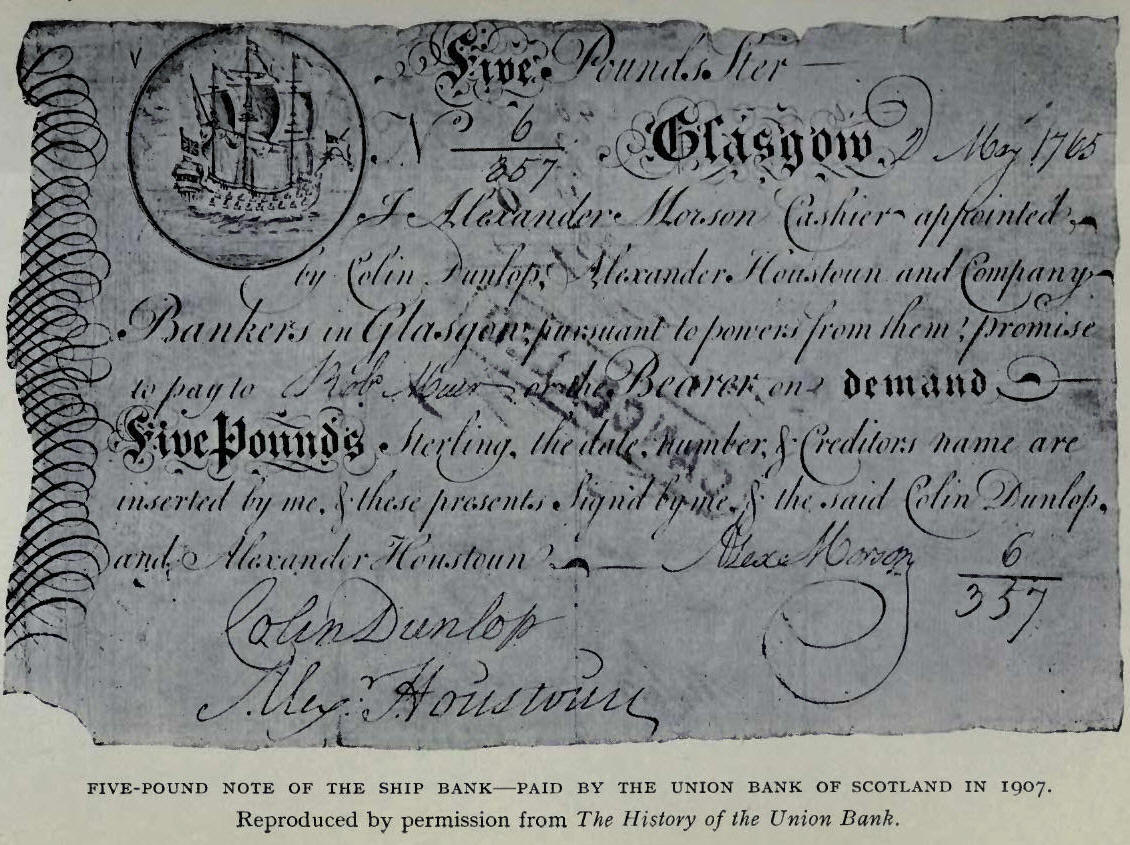 Five Pounds Ster
No 6/357 Glasgow 2 May 1765
I Alexander Morson Cashier appointed
by Colin Dunlop, Alexander Houstoun and Company
Bankers in Glasgow, pursuant to powers from them, promise
to pay to Robt Muir or the Bearer on demand
Five Pounds Sterling, the date, number, & Creditors name are
inserted by me, & these presents Sign'd by me, & the said Colin Dunlop,
and Alexander Houstoun
Alexr Morson 6/357
Colin Dunlop
Alexr Houstoun
FIVE-POUND NOTE OF THE SHIP BANK—PAID BY THE UNION BANK OF SCOTLAND IN 1907.
Reproduced by permission from The History of the Union Bank.